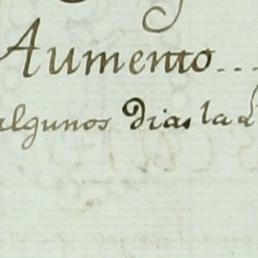 Aumento...
algunos dias la